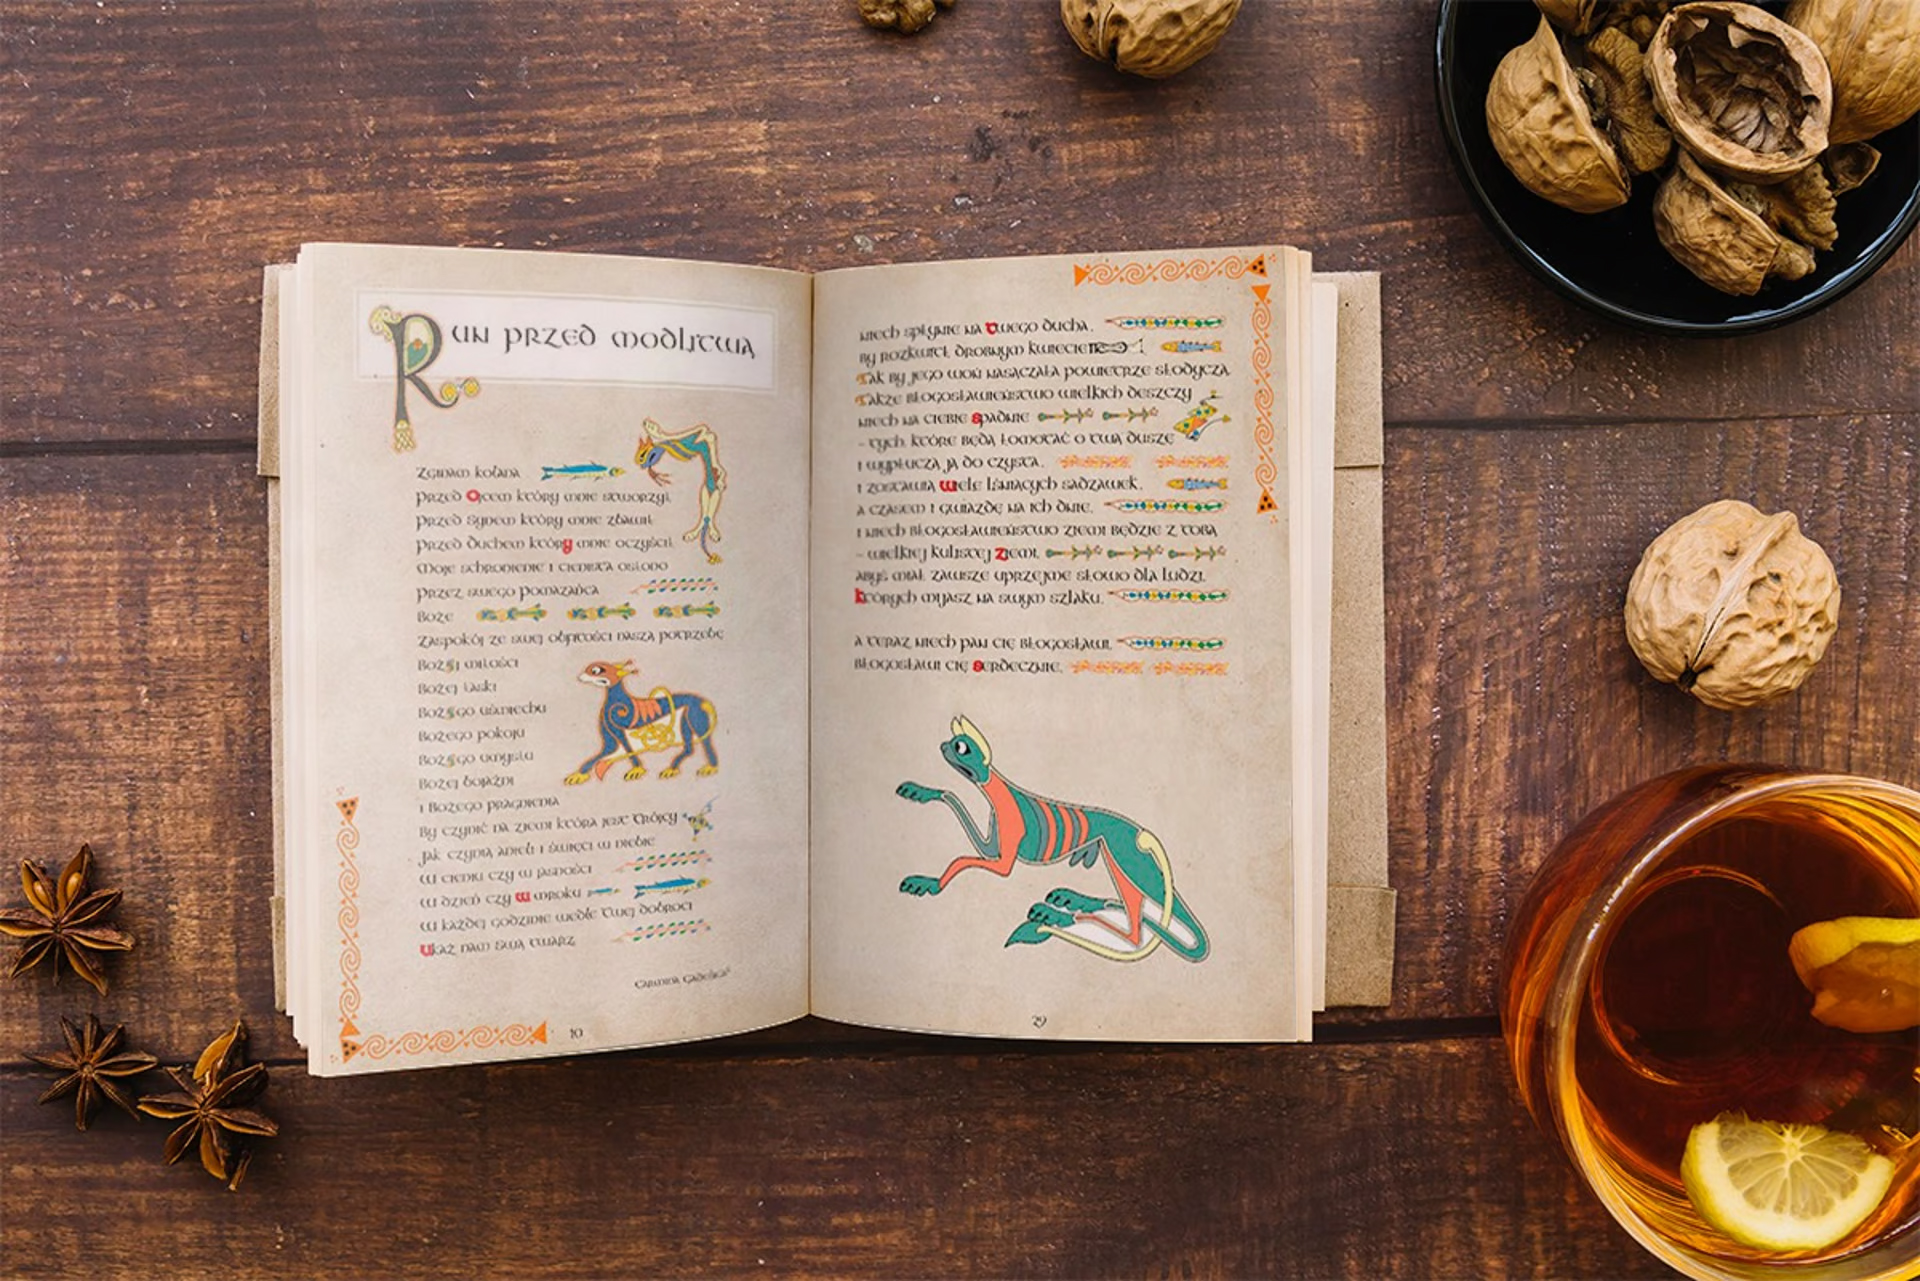 Run przed modlitwą
Zginam kolana
przed Ojcem który mnie stworzył
przed Synem który mnie zbawił
przed Duchem który mnie oczyścił
Moje schronienie i ciemista osłono
przez swego Pomazańca
Boże
Zaspokój ze swej obfitości naszą potrzebę
Bożej miłości
Bożej łaski
Bożego uśmiechu
Bożego pokoju
Bożego umysłu
Bożej bojaźni
i Bożego pragnienia
By czynić na ziemi która jest Trójcy
Jak czynią anieli i święci w niebie
W cieniu czy w jasności
W dzień czy w mroku
W każdej godzinie wedle Twej dobroci
Ukaż nam swą twarz
Carmina Gadelica
10
niech spłynie na twego ducha,
by rozkwitł drobnym kwieciem
Tak by jego woń nasączała powietrze słodyczą.
Także błogosławieństwo wielkich deszczy
niech na ciebie spadnie
- tych, które będą łomotać o twą duszę
i wypłuczą ją do czysta,
i zostawią wiele lśniących sadzawek,
a czasem i gwiazdę na ich dnie.
I niech błogosławieństwo ziemi będzie z tobą
- wielkiej kulistej ziemi,
abyś miał zawsze uprzejme słowo dla ludzi,
których mijasz na swym szlaku.
A teraz niech Pan cię błogosławi,
błogosławi cię serdecznie.
29